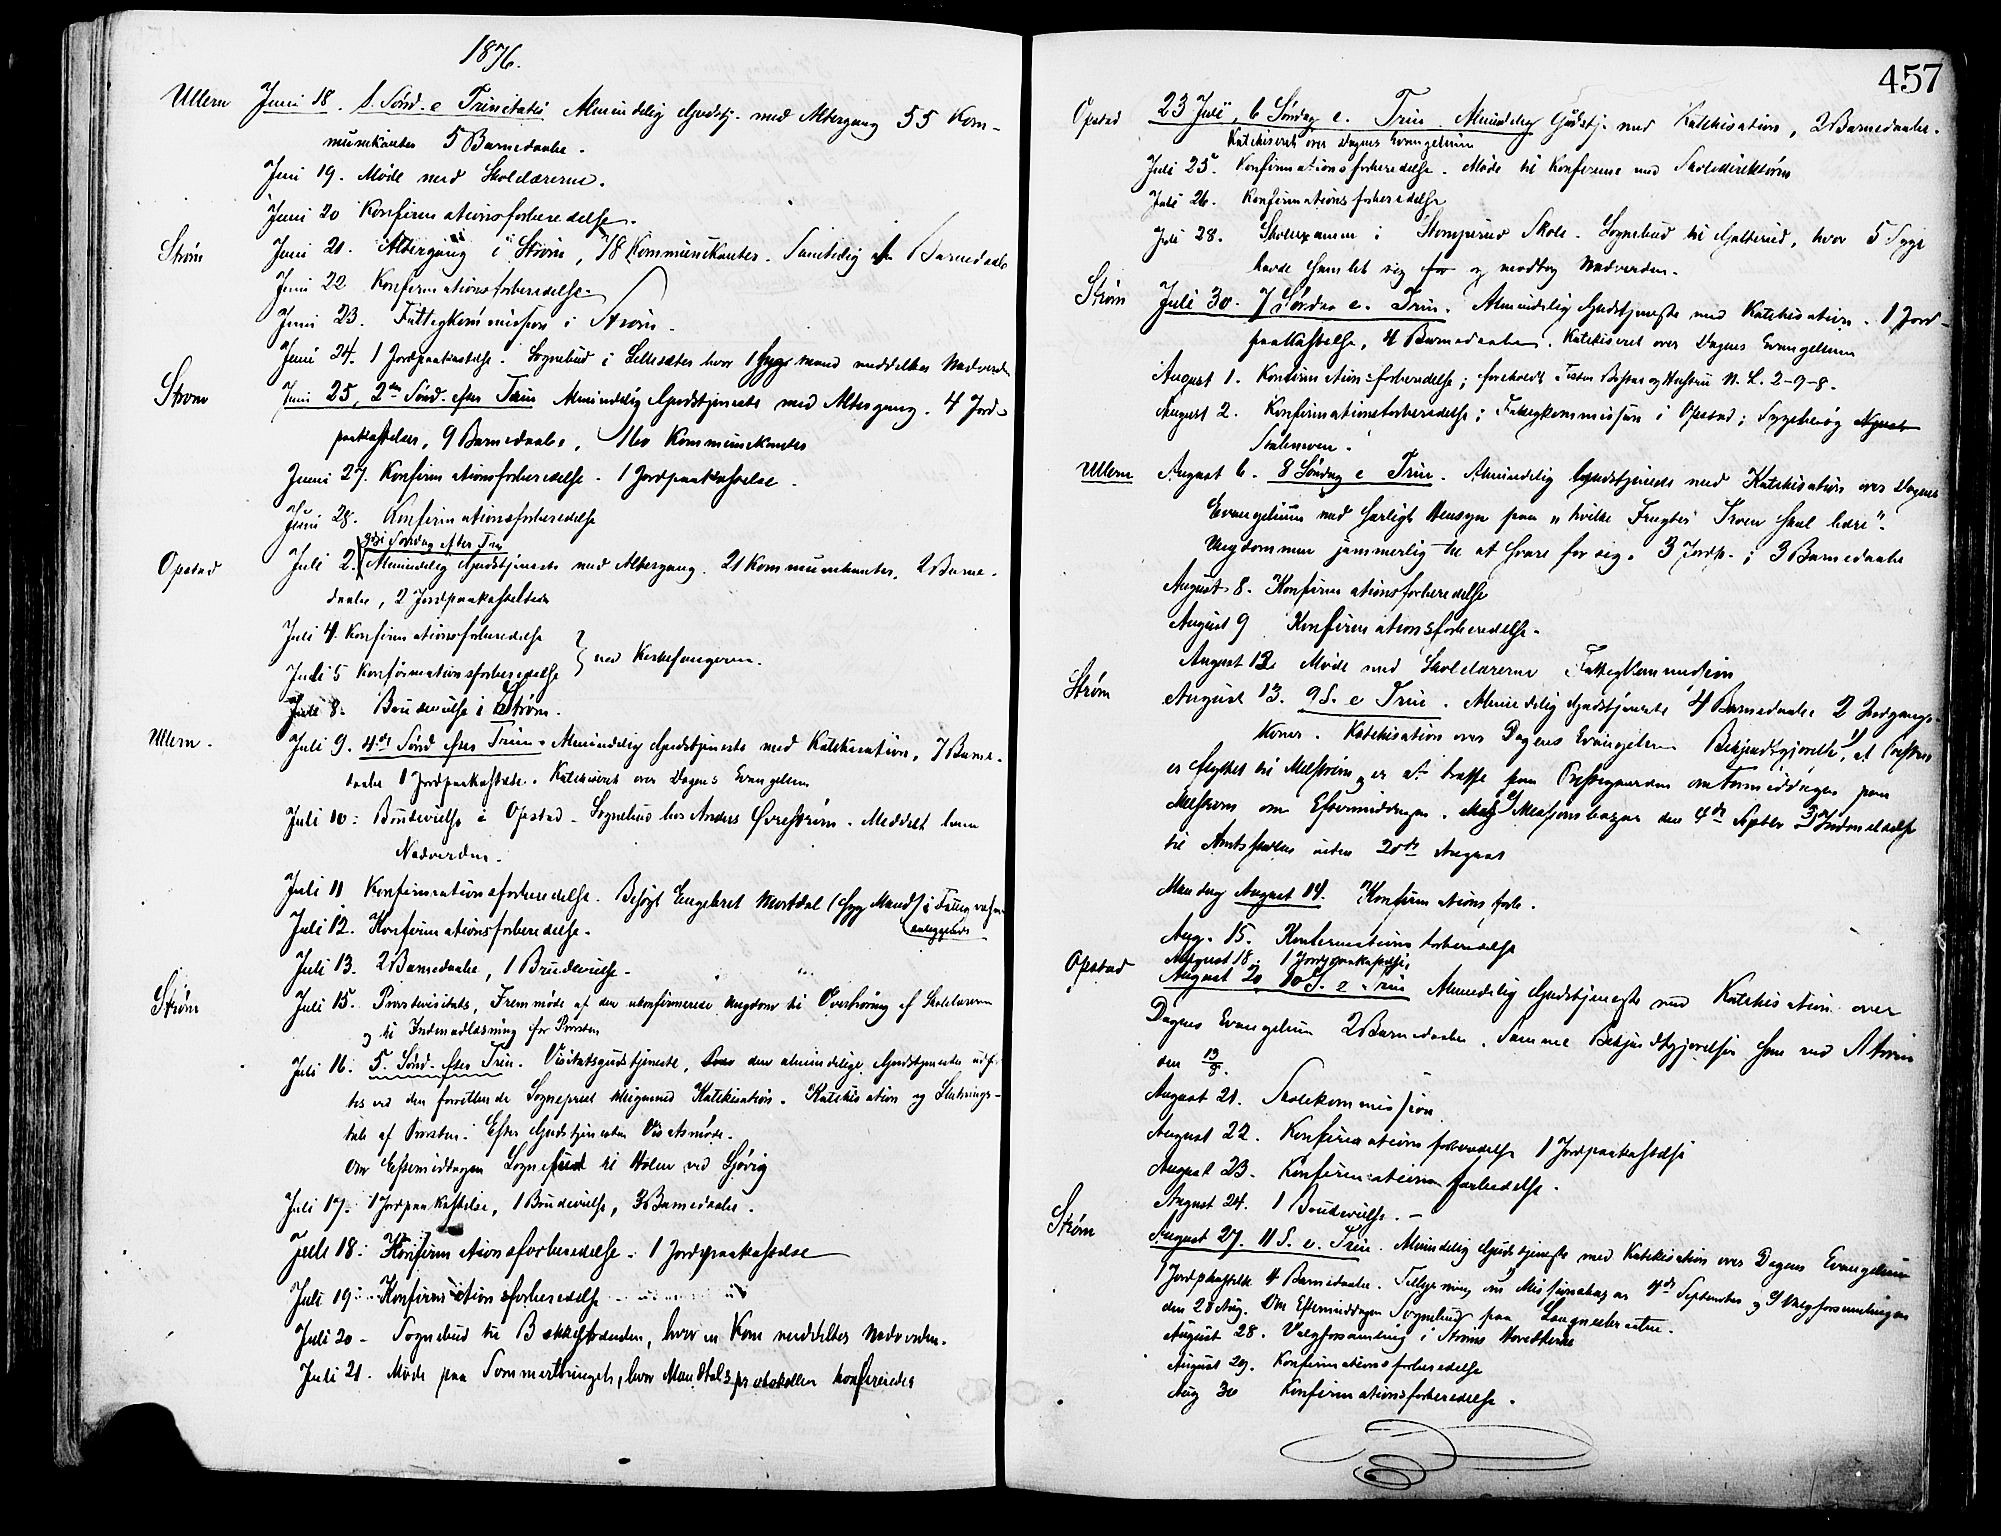 1876.
Ullern Juni 18. 1. Sønd. e Trinitatis Almindelig Gudstj. med Altergang 55 Kom-
munikanter 5 Barnedaabe.
Juni 19. Møde med Skolelærerne.
Juni 20 Konfirmationsforberedelse.
Strøm Juni 21. Altergang i Strøm, 78 Kommunikanter. Samtidig Barnedaab
Juni 22 Konfirmationsforberedelse
Juni 23. Fattigkommission i Strøm.
Juni 24. 1 Jordpaakastelse. Sognebud i hvor 1 syg mand meddeltes Nadverden
Strøm Juni 25, 2den Sønd. efter Trin Almindelig Gudstjeneste med Altergang. 4 Jord-
paakastelser, 9 Barnedaabe, 160 Kommunikanter
Juni 27. Konfirmationsforberedelse. 1 Jordpaakastelse.
Juni 28. Konfirmationsforberedelse
3die Søndag efter Trin
Opstad Juli 2. Almindelig Gudstjeneste med Altergang. 21 Kommunikanter. 2 Barne-
daabe, 2 Jordpaakastelser
Juli 4. Konfirmationsforberedelse
Juli 5 Konfirmationsforberedelse } ved Kirkesangeren.
Juli 8. Brudevielse i Strøm.
Ullern. Juli 9. 4de Sønd efter Trin. Almindelig Gudstjeneste med Katekisation, 7 Barne-
daabe 1 Jordpaakastelse. Katekiseret over Dagens Evangelium
Juli 10: Brudevielse i Opstad. Sognebud hos Anders Øvrestrøm. Meddelt ham
Nadverden.
Juli 11 Konfirmationsforberedelse. Besøgt Engebret Mortdal (syg Mand) i
anliggende
Juli 12. Konfirmationsforberedelse.
Juli 13. 2 Barnedaabe, 1 Brudevielse.
Strøm Juli 15. Provstevisitats, Fremmøde af den ukonfirmerede Ungdom til Overhøring af Skolelærerne
og til Indenadlæsning for Provsten
Juli 16: 5. Sønd. efter Trin. Visitatsgudstjeneste, den almindelige Gudstjeneste
ved den forrettende Sognepræst Katekisation. Katekisation og Slutnings-
tale af Provsten. Efter Gudstjenesten Visitatsmøde.
Om Eftermiddagen Sognebud til Holen ved
Juli 17. 1 Jordpaakastelse, 1 Brudevielse, 3 Barnedaabe.
Juli 18: Konfirmationsforberedelse. 1 Jordpaakastelse
Juli 19: Konfirmationsforberedelse
Juli 20 - Sognebud til Bekkelfodeden, hvor en Kone meddeltes Nadverden.
Juli 21. Møde paa hvor Mandtalsprotokollen konfereredes
457
Opstad 23 Juli, 6 Søndag e. Trin. Almindelig Gudstj. med Katekisation, 2 Barnedaabe.
Katekiseret over Dagens Evangelium
Juli 25. Konfirmationsforberedelse. Møde til Konference med Skoledirektøren
Juli 26. Konfirmationsforberedelse
Juli 28. Skoleexamen i Skole. Sognebud til Galterud, hvor 5 Syge
havde samlet sig for og modtog Nadverden.
Strøm Juli 30. 7 Søndag e. Trin. Almindelig Gudstjeneste med Katekisation. 1 Jord-
paakastelse, 4 Barnedaabe. Katekiseret over Dagens Evangelium
August 1. Konfirmationsforberedelse; foreholdt og Hustru N. L. 2-9-8.
August 2. Konfirmationsforberedelse; Fattigkommission i Opstad; Sygebesøg
Ullern August 6. 8 Søndag e Trin. Almindelig Gudstjeneste med Katekisation over Dagens
Evangelium med særligt Hensyn paa „hvilke Frugter Troen skal bære".
Ungdommen jammerlig til at svare for sig. 3 Jordp.; 3 Barnedaabe
August 8. Konfirmationsforberedelse
August 9 Konfirmationsforberedelse.
August 12. Møde med Skolelærerne Fattigkommission
Strøm August 13. 9 S. e Trin. Almindelig Gudstjeneste 4 Barnedaabe 2 Indgangs-
koner. Katekisation over Dagens Evangelium Bekjendtgjørelse 1), at Presten
er flyttet til Melstrøm, er at træffe paa Prestegaarden om Formiddagen paa
Melstrøm om Eftermiddagen. 2) Missionsbazar den 4de Septbr 3) Indmeldelse
til Amtsskolen inden 20de August
Mandag August 14. Konfirmationsforb.
Aug. 15. Konfirmationsforberedelse
August 18. 1 Jordpaakastelse.
Opstad August 20 10 S. e Trin Almindelig Gudstjeneste med Katekisation over
Dagens Evangelium 2 Barnedaabe. Samme Bekjendtgjørelser som ved Strøm
den 13/8.
August 21. Skolekommission.
August 22. Konfirmationsforberedelse 1 Jordpaakastelse
August 23. Konfirmationsforberedelse.
August 24. 1 Brudevielse. -
Strøm August 27. 11 S. e. Trin. Almindelig Gudstjeneste med Katekisation over Dagens Evangelium
1 Jordpkastelse 4 Barnedaabe. Tillysning om Missionsbazar 4de September og Valgforsamlingen
den 28 Aug. Om Eftermiddagen Sognebud paa
August 28. Valgforsamling i Strøms Hovedkirke
August 29. Konfirmationsforberedelse
Aug 30 Konfirmationsforberedelse.